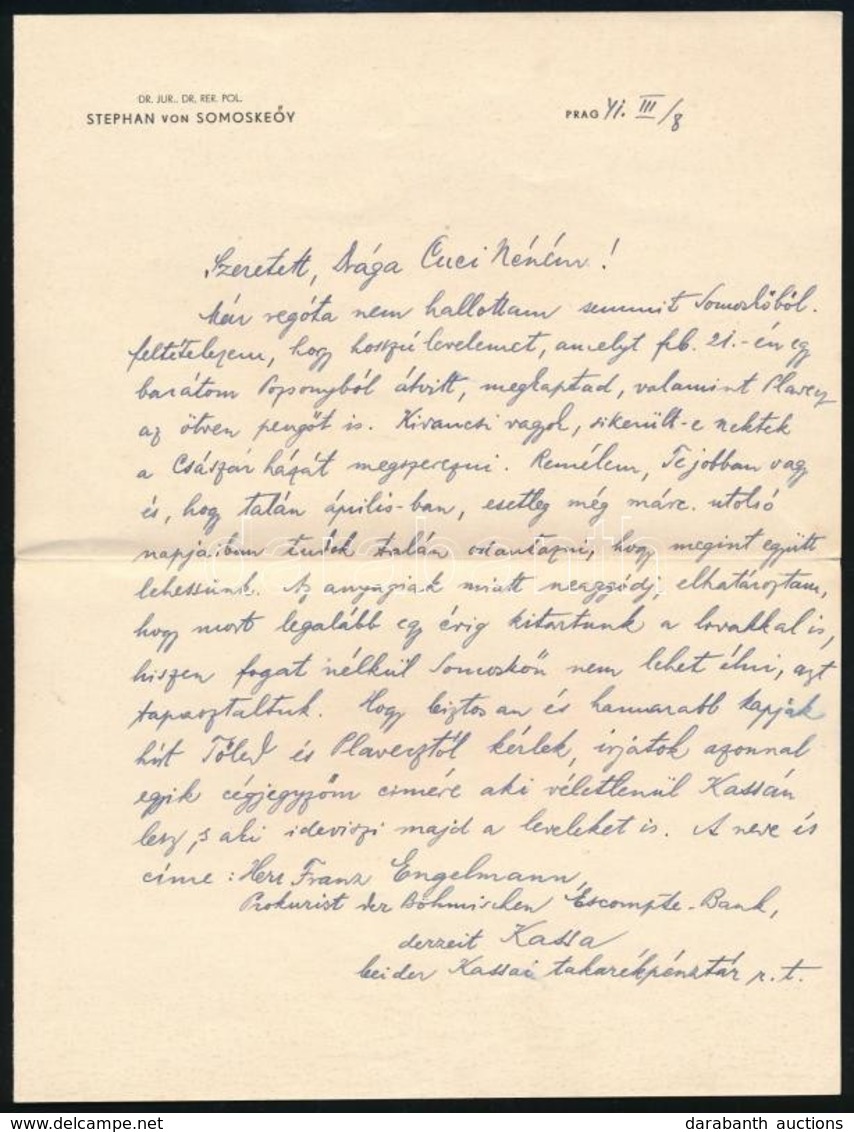 DR. JUR., DR. RER. POL.
STEPHAN VON SOMOSKEŐY
PRAG 41. III/8
Szeretett, Drága Cuci Néném!
Már régóta nem hallottam semmit Somoskőből.
feltételezem, hogy hosszú levelemet, amelyt feb. 21.-én egy
barátom Pozsonyból átvitt, megkaptad, valamint Plavecz
az ötven pengőt is. Kiváncsi vagyok, sikerült-e nektek
a Császár házát megszerezni. Remélem, Te jobban vagy
és, hogy talán április-ban, esetleg még márc. utolsó
napjaiban tudok talán odautazni, hogy megint együtt
lehessünk. Az anyagiak miatt ne aggódj, elhatároztam,
hogy most legalább egy évig kitartunk a lovakkal is,
hiszen fogat nélkül Somoskőn nem lehet élni, azt
tapasztaltuk. Hogy biztosan és hamarabb kapjak
hírt Tőled és Plavecztől kérlek, írjátok azonnal
egyik cégjegyzőm címére aki véletlenül Kassán
lesz, s aki ideviszi majd a leveleket is. A neve és
címe: Herr Franz Engelmann,
Prokurist der Böhmischen Escompte-Bank,
derzeit Kassa
bei der Kassai takarékpénztár r.t.
darabanth
darabanth auctions
delcampe.net